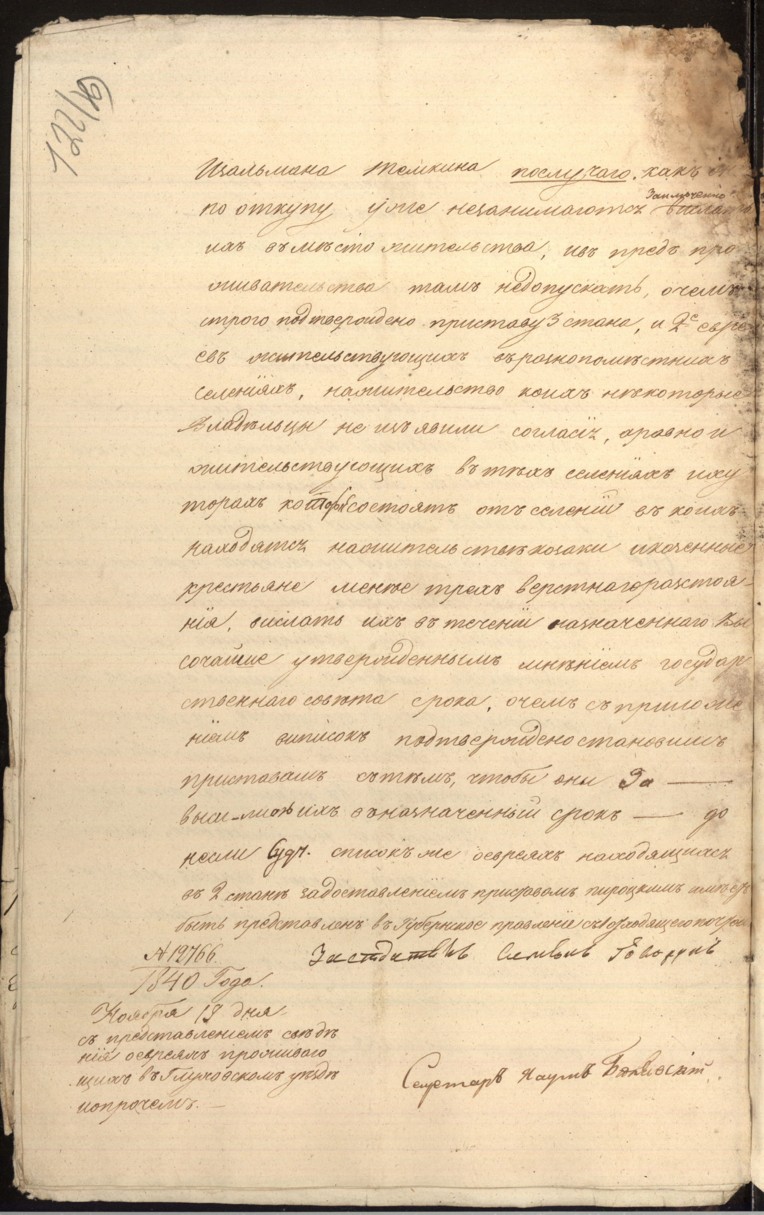 122/16
Шальмана Темкина послучаго, какъ
по откупу уже незанимаются Заключенно
ихъ въ мѣсто жительства, ивъ предъ про
живательства тамъ недопускать, очемъ
строго подтверждено приставу 3 стана, и 2е евре
евъ жительствующихъ въ разнопомѣстныхъ
селеніяхъ, нажительство коихъ нѣкоторые
Владѣльцы не изъявили согласія, аравно и
жительствующихъ въ тѣхъ селеніяхъ иху
торахъ состоятъ отъ селеній въ коихъ
находятся нажительствѣ козаки иказенные
крестьяне менѣе трехъ верстнагоразстоя
нія, вислать ихъ въ теченіи назначеннаго Вы
сочайше утвержденнымъ мнѣніемъ государ
ственнаго совѣта срока, очемъ съ приложе
ніемъ выписокъ подтвержденостановымъ
приставамъ сътѣмъ, чтобы они За —
ихъ въназначенный срокъ — до
несли списокъ же оевреяхъ находящихся
въ 2 станѣ задоставленіемъ приставомъ имѣетъ
быть представленъ въ Губернское правленіе
№ 12766.
1840 Года.
Ноября 19 дня
съ представленіемъ свѣдѣ
нія оевреяхъ проживаю
щихъ въ Глуховскомъ уѣздѣ
ипрочемъ. —
Секретарь Наумъ